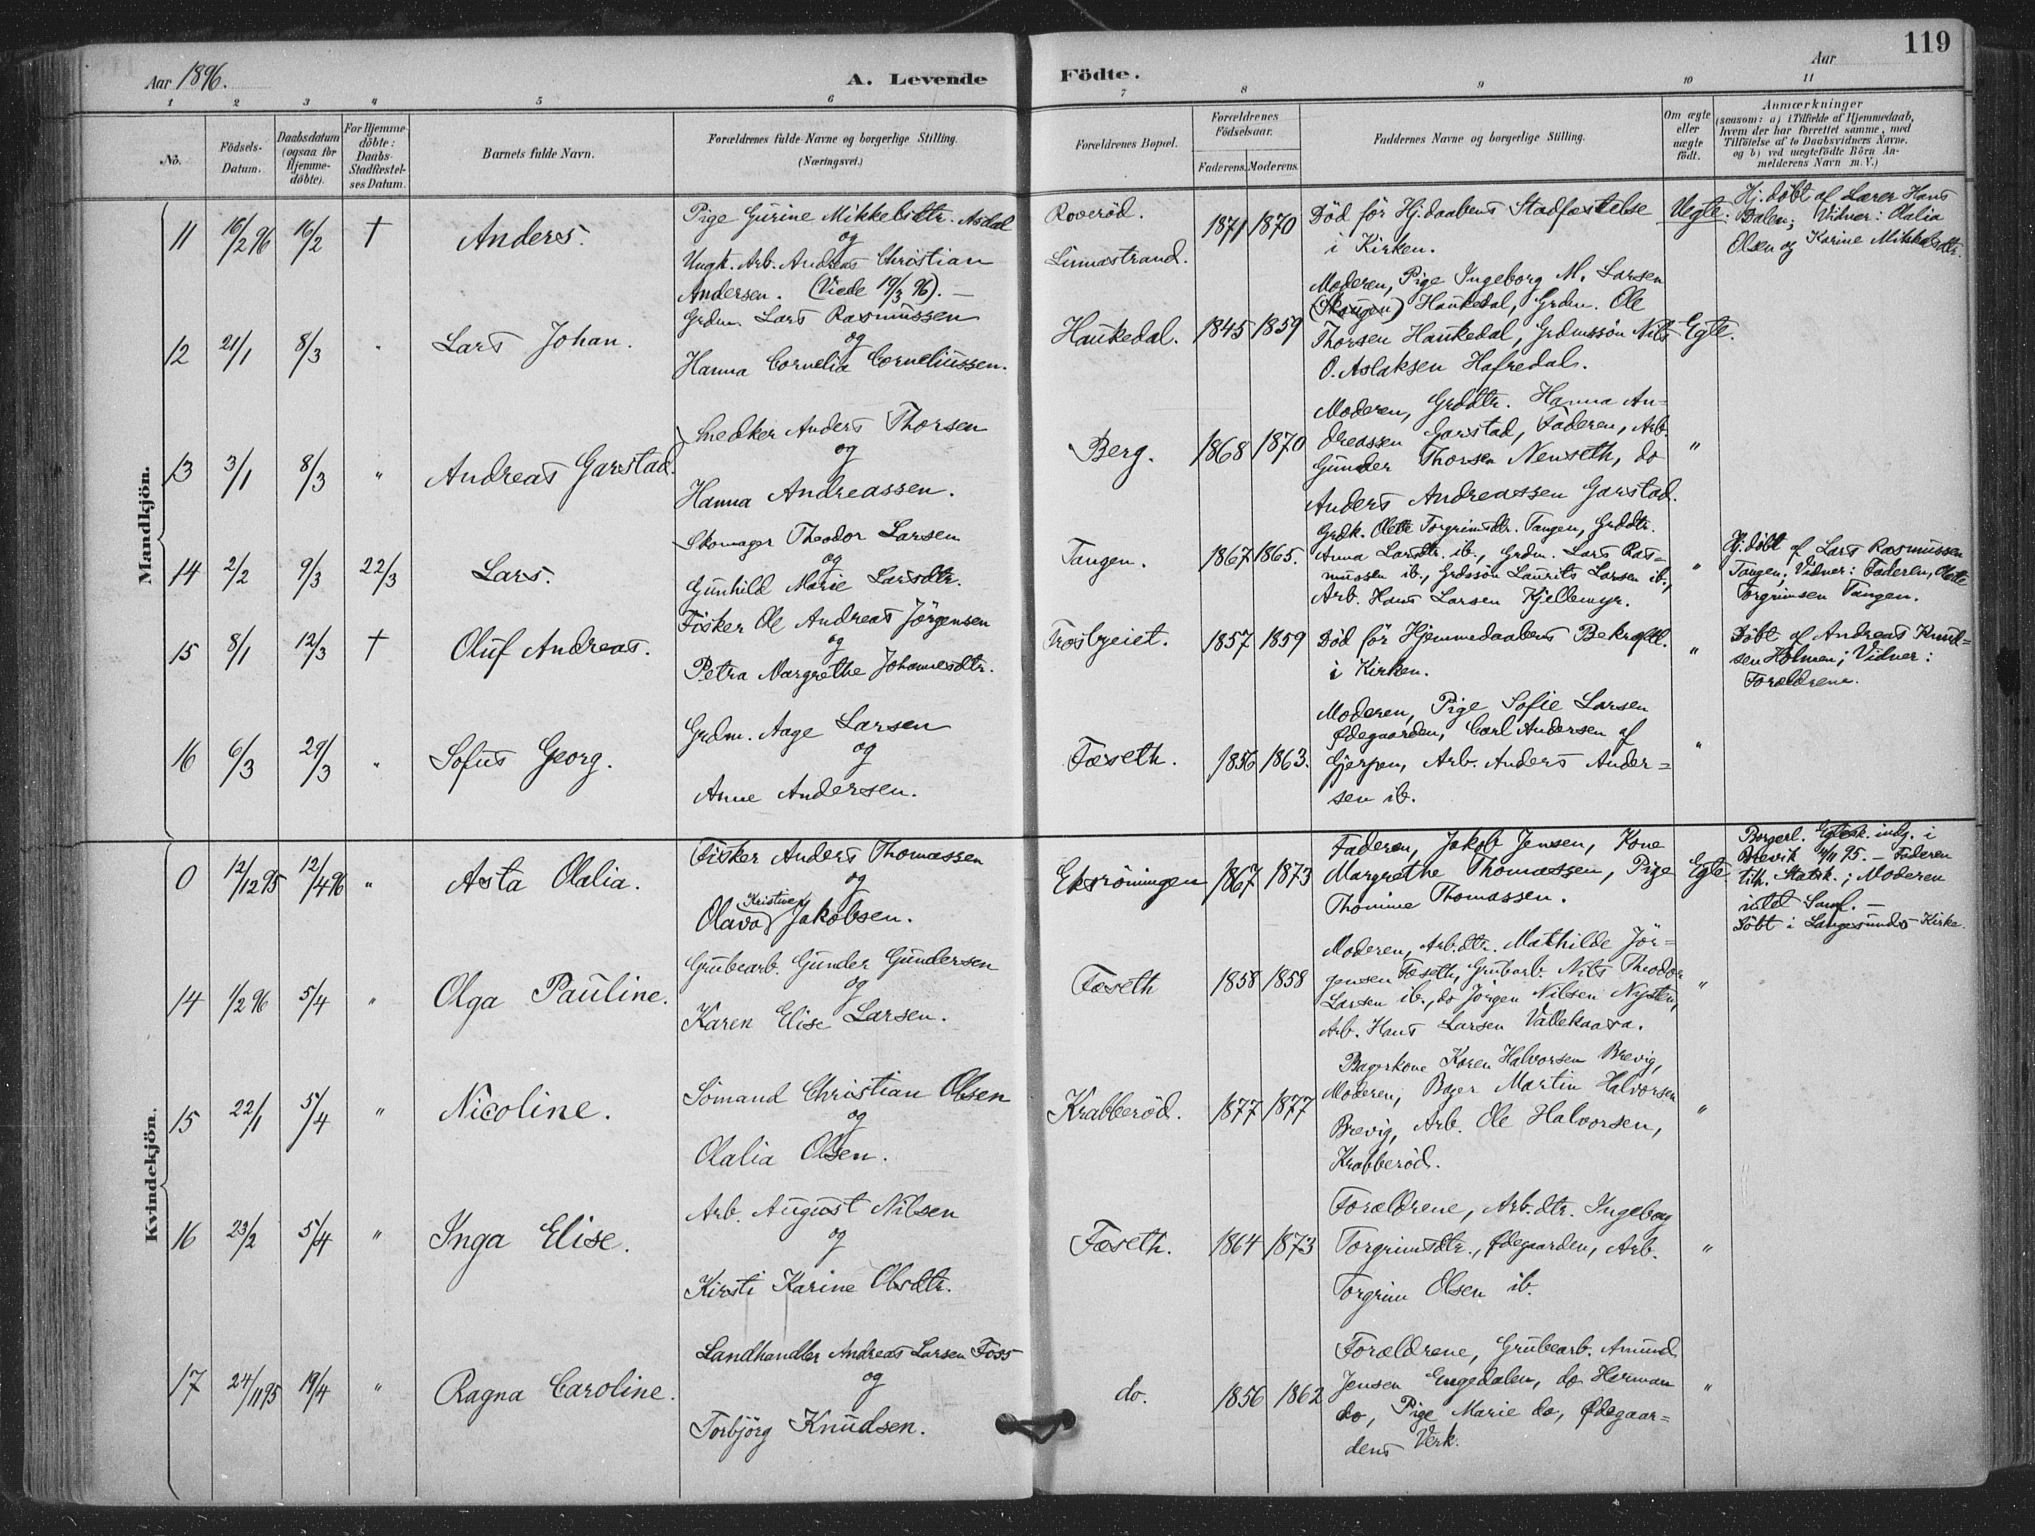 119
Aar 1896.
A. Levende
Födte.
Aar
1 2 3 4 5 6 7 8 9 10 11
No.
Födsels-
Datum.
Daabsdatum
(ogsaa for
Hjemme-
döbte).
For Hjemme-
döbte:
Daabs-
Stadfæstel-
ses Datum.
Barnets fulde Navn.
Forældrenes fulde Navne og borgerlige Stilling.
(Næringsvei.)
Forældrenes Bopæl.
Forældrenes
Födselsaar.
Faderens. Moderens.
Faddernes Navne og borgerlige Stilling.
Om ægte
eller
uægte
födt.
Anmærkninger
(saasom: a) i Tilfælde af Hjemmedaab,
hvem der har forrettet samme, med
Tilföielse af to Daabsvidners Navne,
og b) ved uægtefödte Börn An-
melderens Navn m. V.)
Mandkjön.
11 16/2 96 16/2 † Anders.
Pige Gurine Mikkelsdtr. Asdal
og
Ungk. Arb. Andreas Christian
Andersen. (Viede 19/3 96). —
Roverød.
Linnastrand.
1871 1870
Død før Hj.daabens Stadfæstelse
i Kirken.
Uegte.
Hj.døbt af Lærer Hans
Dalen; Vidner: Olalia
Olsen og Karine Mikkelsdtr.
12 21/1 8/3 " Lars Johan.
Grdm. Lars Rasmussen
og
Hanna Cornelia Corneliussen.
Haukedal. 1845 1859
Moderen, Pige Ingeborg M. Larsen
(Skougen) Haukedal, Grdm. Ole
Thorsen Haukedal, Grdmssøn Nils
O. Aslaksen Hafredal.
Egte.
13 3/1 8/3 " Andreas Garstad.
Snedker Anders Thorsen
og
Hanna Andreassen.
Berg. 1868 1870
Moderen, Grddtr. Hanna An-
dreassen Garstad, Faderen, Arb.
Gunder Thorsen Nenseth, do
Anders Andreassen Garstad.
"
14 2/2 9/3 22/3 Lars.
Skomager Theodor Larsen
og
Gunhild Marie Larsdtr.
Tangen. 1867 1865.
Grdk. Olette Torgrimsdtr. Tangen, Grddtr.
Anna Larsdtr. ib., Grdm. Lars Ras-
mussen ib., Grdssøn Laurits Larsen ib.,
Arb. Hans Larsen Kjellemyr.
"
Hj.døbt af Lars Rasmussen
Tangen; Vidner: Faderen, Olette
Torgrimsen Tangen.
15 8/1 12/3 † Oluf Andreas.
Fisker Ole Andreas Jörgensen
og
Petra Margrethe Johannesdtr.
Trosbyeiet. 1857 1859
Død før Hjemmedaabens Bekræft.
i Kirken.
"
Døbt af Andreas Knud-
sen Holmen; Vidner:
Forældrene.
16 6/3 29/3 " Sofus Georg.
Grdm. Aage Larsen
og
Anne Andersen.
Fæseth. 1856 1863.
Moderen, Pige Sofie Larsen
Ødegaarden, Carl Andersen af
Gjerpen, Arb. Anders Ander-
sen ib.
"
Kvindekjön.
0 12/12 95 12/4 96 " Asta Olalia.
Fisker Anders Thomassen
og
Kristine
Olava Jakobsen.
Eksröningen 1867 1873
Faderen, Jakob Jensen, Kone
Margrethe Thomassen, Pige
Thomine Thomassen.
Egte.
Borgerl. Egtesk. indg. i
Brevik 4/11 95. — Faderen
tilh. Statsk.; Moderen
intet Samf. —
Døbt i Langesunds Kirke.
14 1/2 96 5/4 " Olga Pauline.
Grubearb. Gunder Gundersen
og
Karen Elise Larsen.
Fæseth 1858 1858
Moderen, Arb.dtr. Mathilde Jör-
gensen Fæseth, Grubearb. Nils Theodor
Larsen ib., do Jörgen Nilsen Nysten,
Arb. Hans Larsen Vallekaasa.
"
15 22/1 5/4 " Nicoline.
Sömand Christian Olsen
og
Olalia Olsen.
Krabberød. 1877 1877
Bagerkone Karen Halvorsen Brevig,
Moderen, Bager Martin Halvorsen
Brevig, Arb. Ole Halvorsen,
Krabberød.
"
16 23/2 5/4 " Inga Elise.
Arb. August Nilsen
og
Kirsti Karine Olsdtr.
Fæseth. 1864 1873
Forældrene, Arb.dtr. Ingeborg
Torgrimsdtr., Ødegaarden, Arb.
Torgrim Olsen ib.
"
17 24/11 95 19/4 " Ragna Caroline.
Landhandler Andreas Larsen Foss
og
Torbjörg Knudsen.
do. 1856 1862
Forældrene, Grubearb. Amund
Jensen Engedalen, do Herman
do, Pige Marie do, Ødegaar-
dens Verk.
"